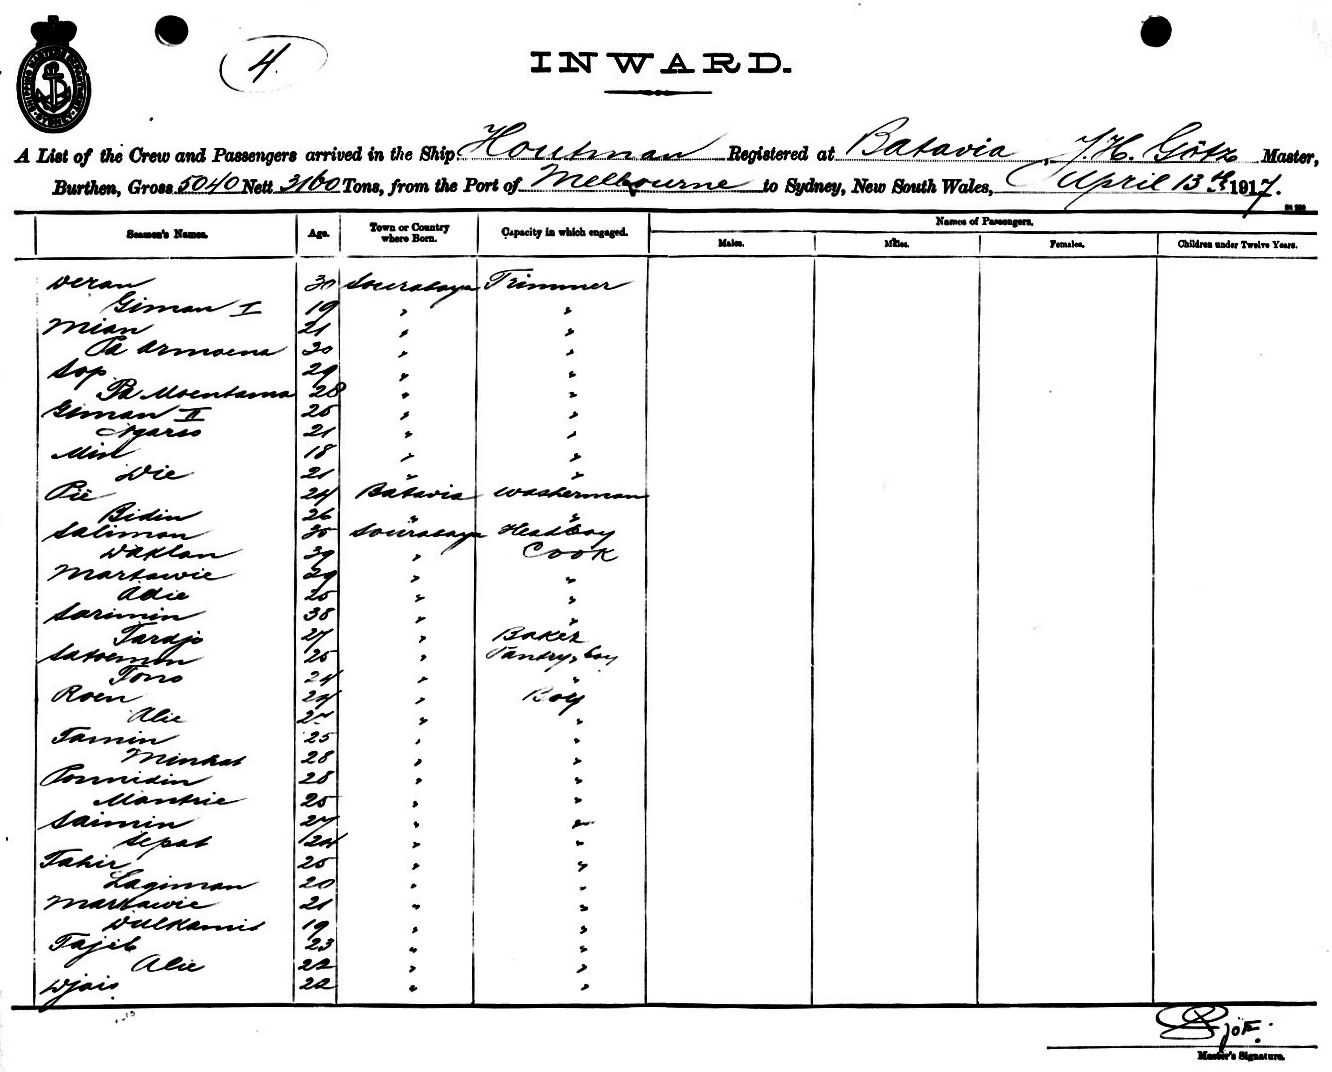 4.
INWARD.
A List of the Crew and Passengers arrived in the Ship Houtman Registered at Batavia J. H. Götz Master,
Burthen, Gross 5040 Nett 3160 Tons, from the Port of Melbourne to Sydney, New South Wales, April 13th 1917.
Seamen's Names. Age. Town or Country where Born. Capacity in which engaged. Names of Passengers.
Males. Males. Females. Children under Twelve Years.
Deran 30 Sourabaya Trimmer
Giman I 19 " "
Mian 21 " "
Pa Armoena 30 " "
Sop 29 " "
Pa Moentama 28 " "
Giman II 25 " "
Ngarso 21 " "
Min 18 " "
Wie 21 " "
Pië 24 Batavia Washerman
Bidin 26 " "
Saliman 35 Sourabaya Headboy
Daklan 39 " Cook
Martawie 29 " "
Adie 25 " "
Sarimin 38 " "
Tardjo 27 " Baker
Satoeman 25 " Pandry, boy
Tono 24 " "
Roen 24 " Boy
Alie 27 " "
Tamin 25 " "
Minhat 28 " "
Ponnidin 28 " "
Mantrie 25 " "
Saimin 27 " "
Sepat 24 " "
Tahir 25 " "
Lagiman 20 " "
Martawie 21 " "
Dulkamis 19 " "
Tajib 23 " "
Alie 22 " "
Djais 22 " "
Master's Signature.